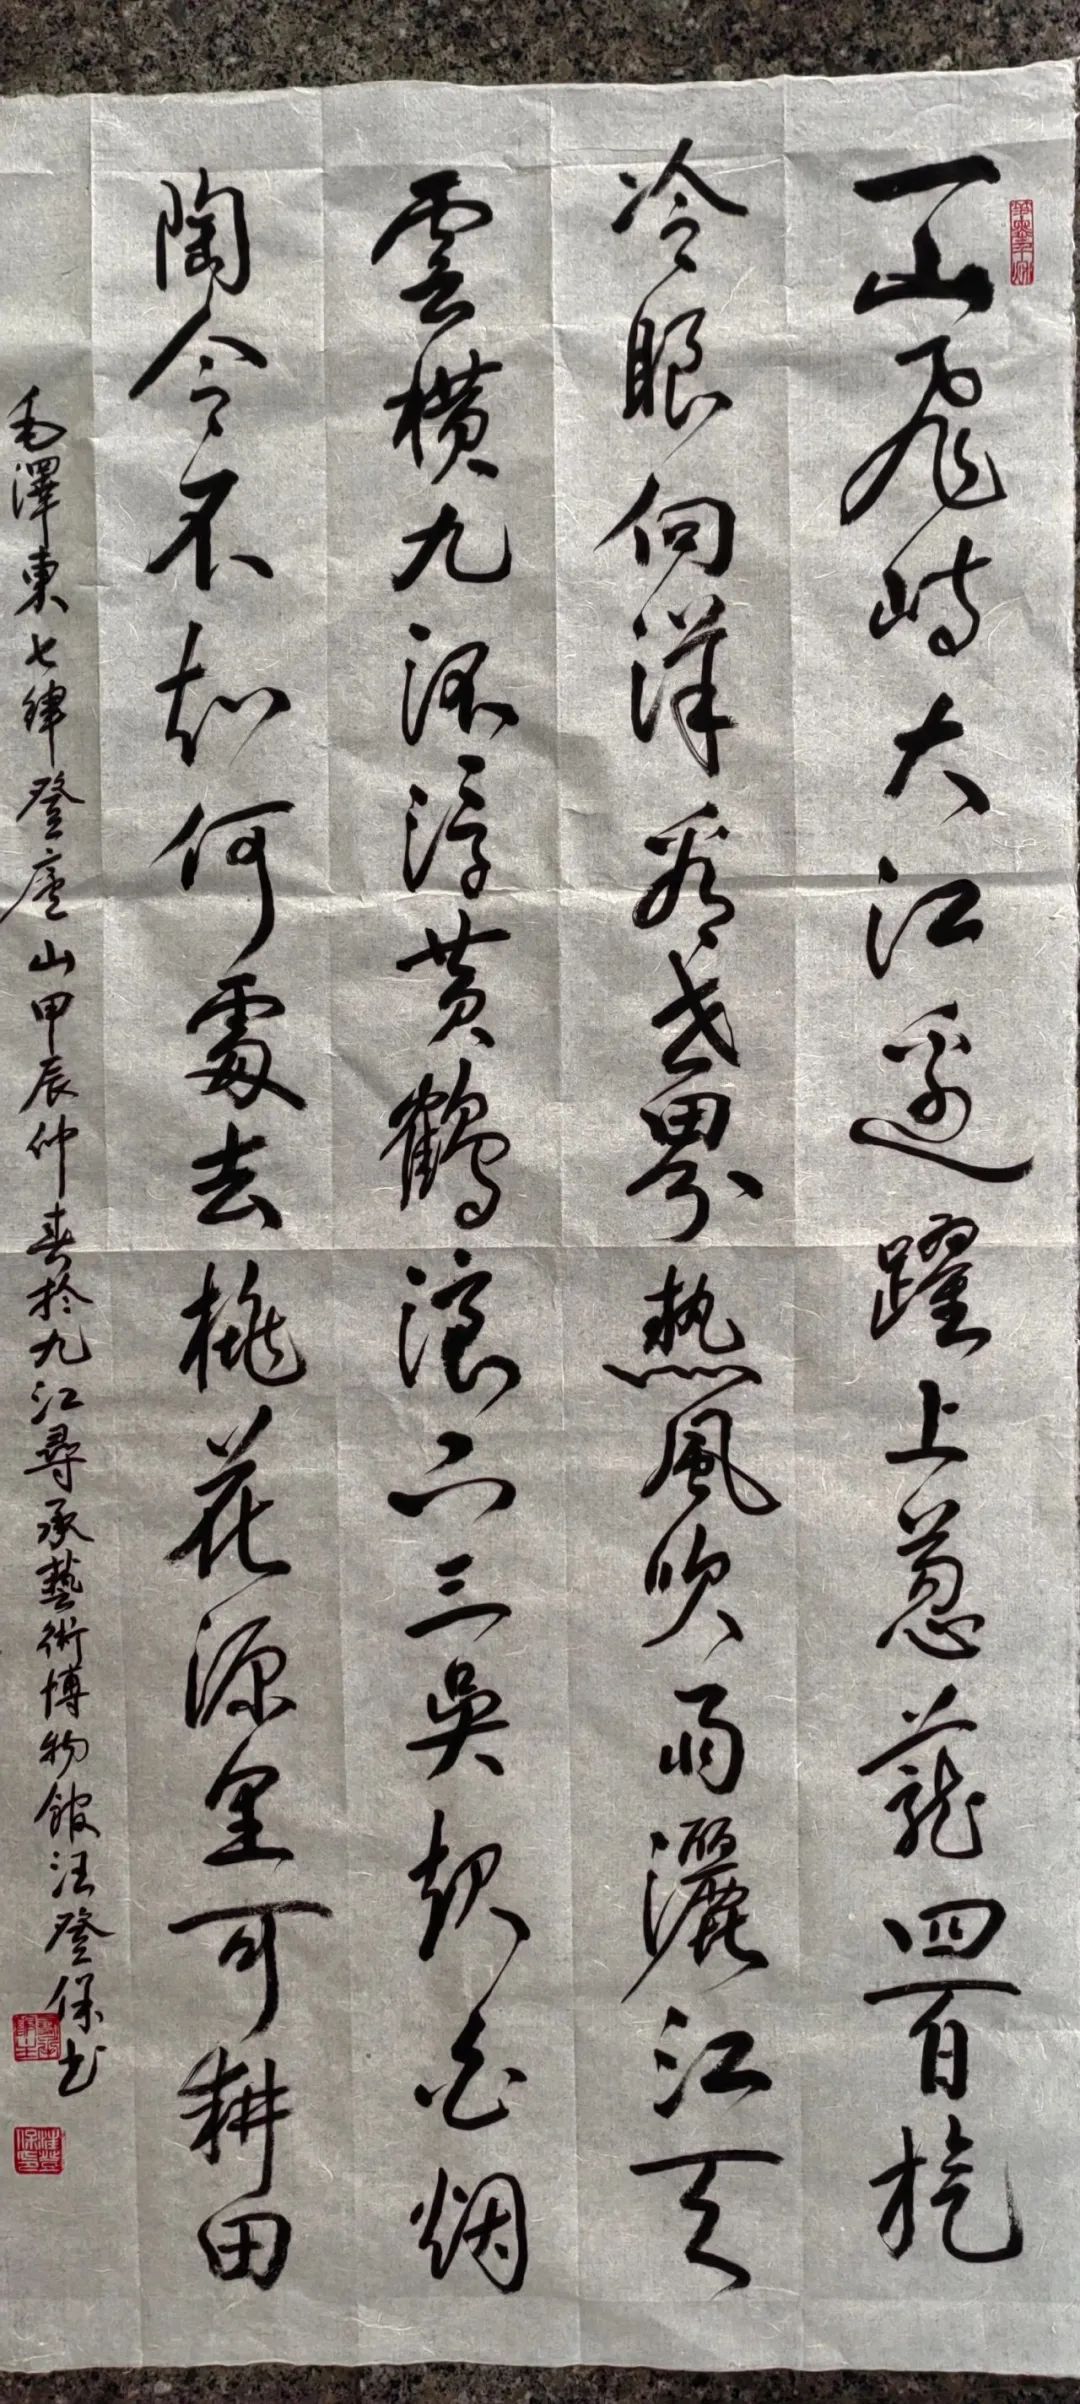 一山飛峙大江邊躍上葱蘢四百旋
冷眼向洋看世界熱風吹雨灑江天
雲横九派浮黄鶴浪下三吳起白烟
陶令不知何處去桃花源里可耕田
毛澤東七律登廬山甲辰仲春於九江尋承藝術博物館汪登保书